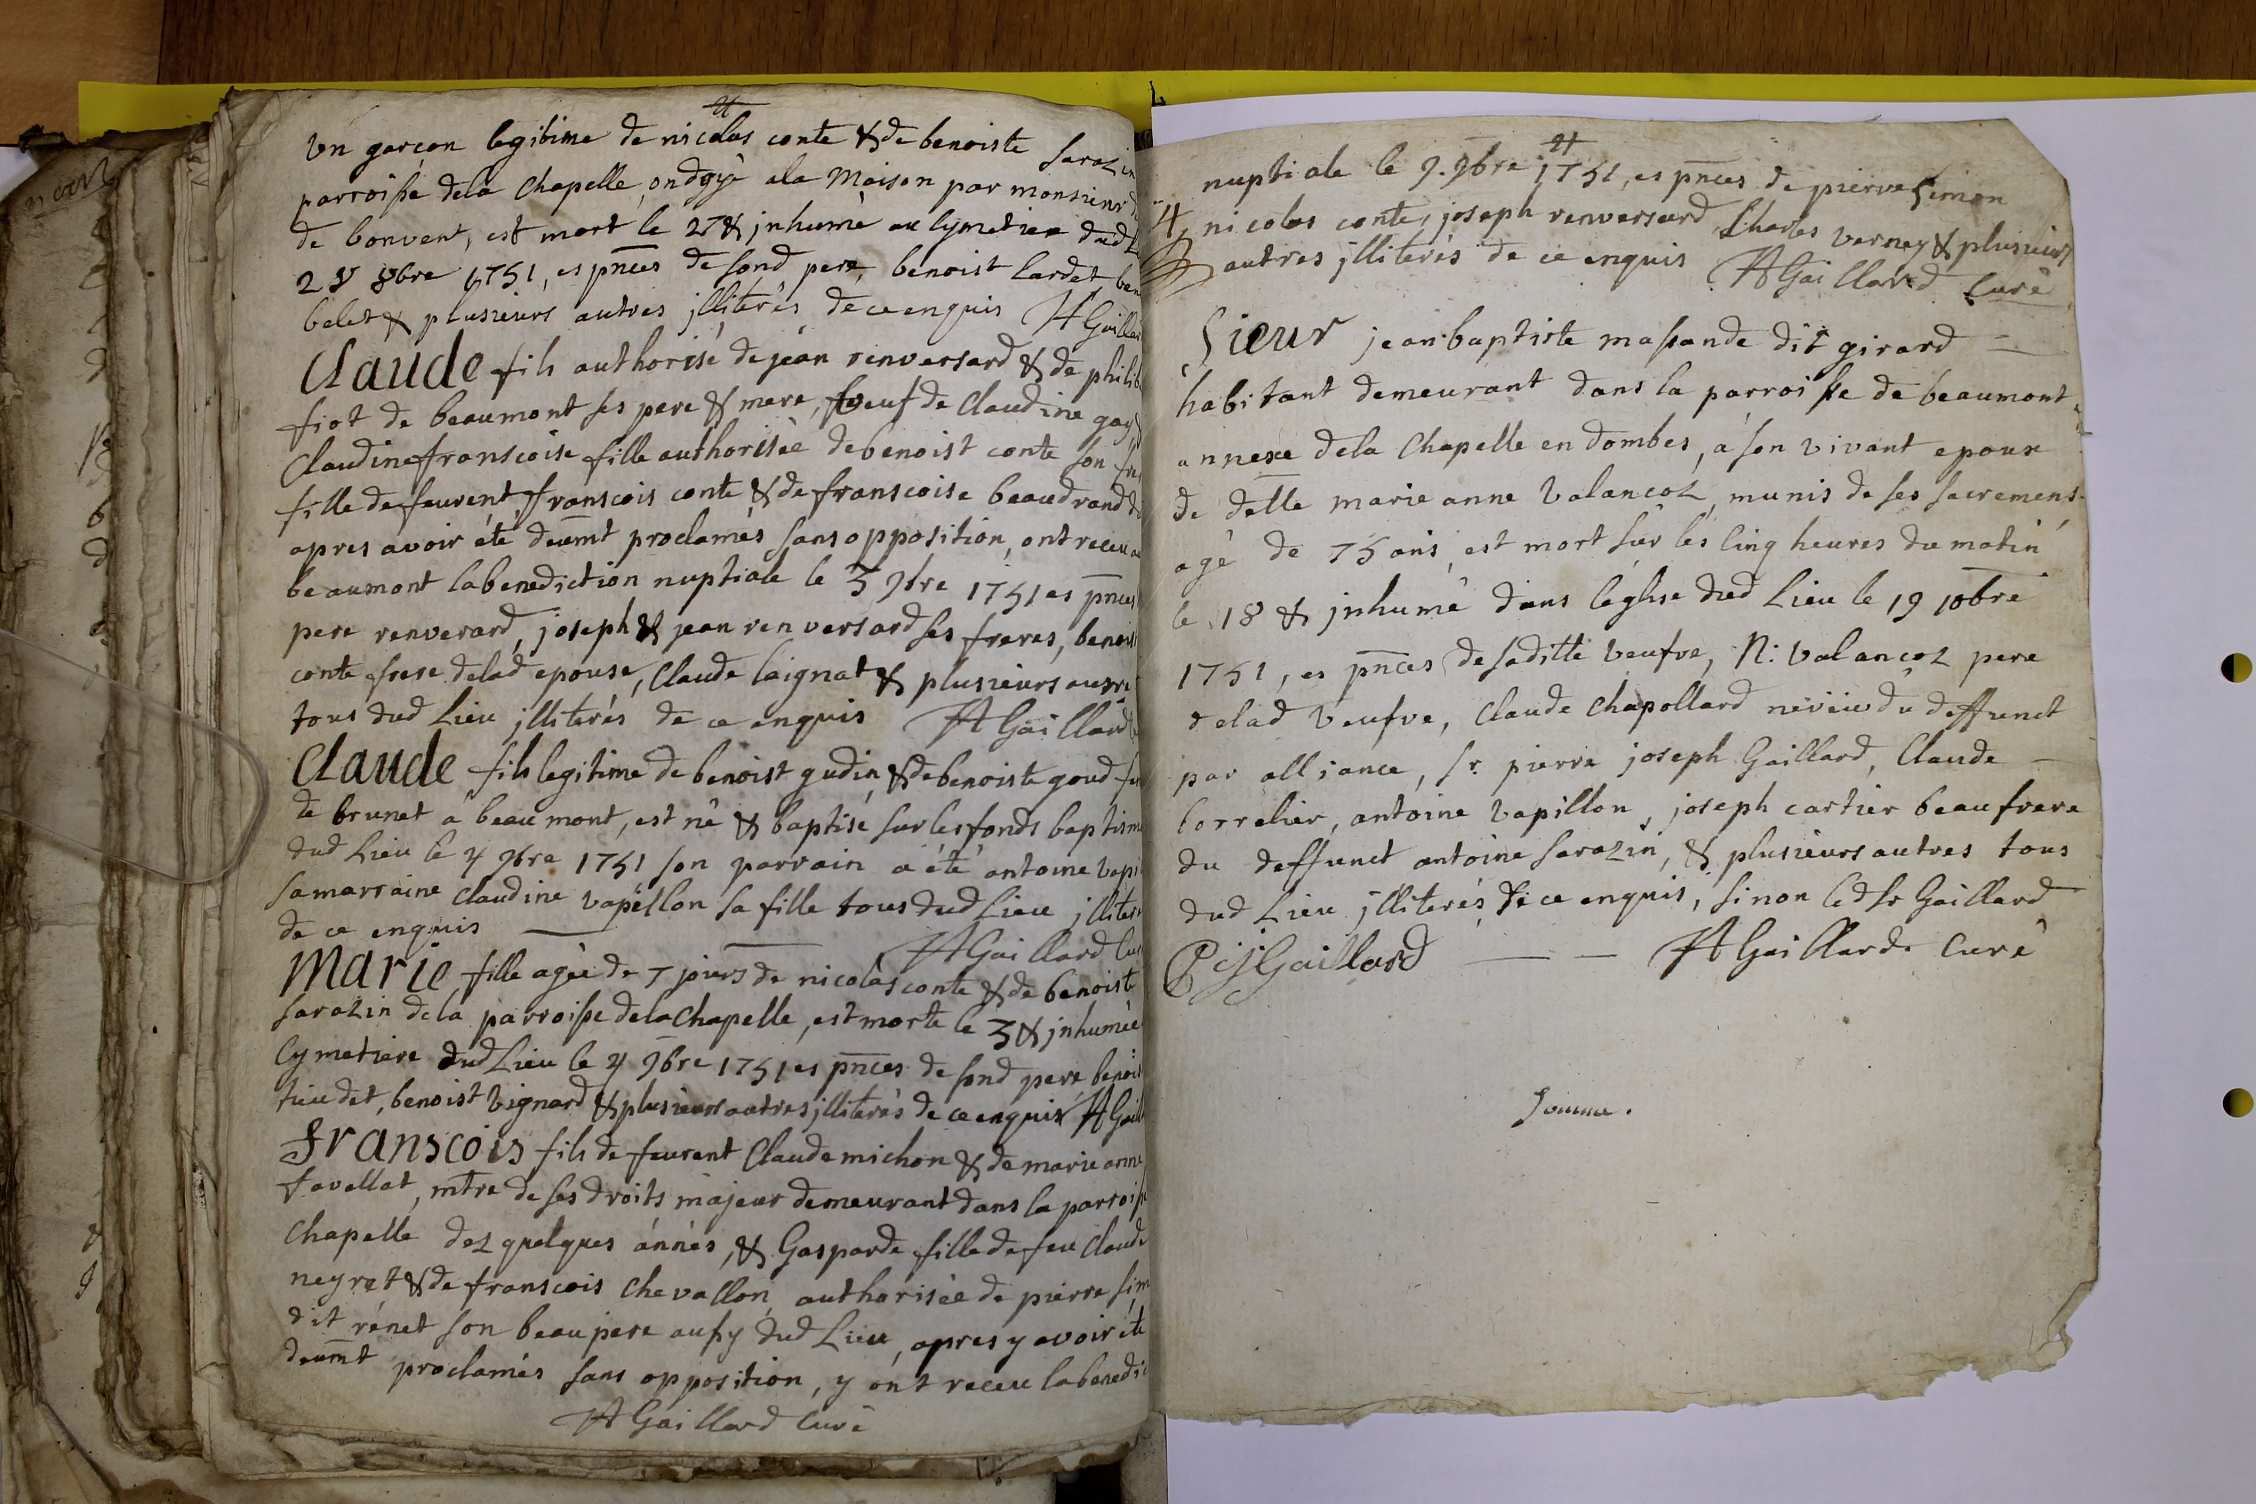 Un garcon legitime de nicolas conte & de benoiste Sarazin
parroisse dela Chapelle, ondoyé ala Maison par monsieur
de bonvent, est mort le 27 & jnhumé au Cymetiere dud L
28 8bre 1751, es pnces de sond pere, benoist Lardet, ben
belet & plusieurs autres jlliterés de ce enquis AGaillar
Claude fils authorisé de jean renversard & de philib
fiot de beaumont ses pere & mere, veuf de Claudine gay
Claudine franscoise fille authorisée de benoist conte son fre
fille de feurent franscois conte & de franscoise beaudrand d
apres avoir été deuemt proclamés sans opposition, ont receu a
beaumont la benediction nuptiale le 3 9bre 1751 es pnces
pere renverard, joseph & jean renversard ses freres, benoist
conte frere delad epouse, Claude Laignat & plusieurs autre
tous dud Lieu jlliterés de ce enquis AGaillard
Claude fils legitime de benoist gudin, & de benoiste goud
de brunet a beaumont, est né & baptisé sur les fonds baptism
dud Lieu le 4 9bre 1751 son parrain a été antoine vapi
sa marraine Claudine vapillon sa fille tous dud Lieu jlliter
de ce enquis AGaillard Cur
Marie fille agée de 7 jours de nicolas conte & de benoiste
sarazin de la parroisse dela Chapelle, est morte le 3 & jnhumée
Cymetiere dud Lieu le 4 9bre 1751 es pnces de sond pere benoist
tieudet, benoist Vignard & plusieurs autres jlliterés de ce enquis AGail
Franscois fils de feurent Claude michon & de marie anne
favellat, mtre de ses droits majeur demeurant dans la parroiss
Chapelle dez quelques années, & Gasparde fille de feu Claude
neyret & de franscois Chevallon authorisée de pierre sim
dit rénet son beaupere aussy dud Lieu, apres y avoir été
deuemt proclamés sans opposition, y ont receu la benedic
AGaillard Curé
nuptiale le 9. 9bre 1751, es pnces de pierre Simon
nicolas conte, joseph renversard, Charles verney & plusieurs
autres jlliterés de ce enquis AGaillard Curé
Sieur jean baptiste massande dit girard
habitant demeurant dans la parroisse de beaumont
annexe dela Chapelle en dombes, a son vivant epoux
de delle marie anne Valancoz, munis de ses sacremens
agé de 75 ans, est mort sur les Cinq heures du matin
le 18 & jnhumé dans léglise dud Lieu le 19 10bre
1751, es pnces de saditte veufve, N: Valancoz pere
delad veufve, Claude Chapollard neveu du deffunct
par alliance, Sr. pierre joseph Gaillard, Claude
Correlier, antoine Vapillon, joseph cartier beaufrere
du deffunct antoine sarazin, & plusieurs autres tous
dud Lieu jlliterés de ce enquis, sinon led Sr Gaillard
PJGaillard AGaillard Curé